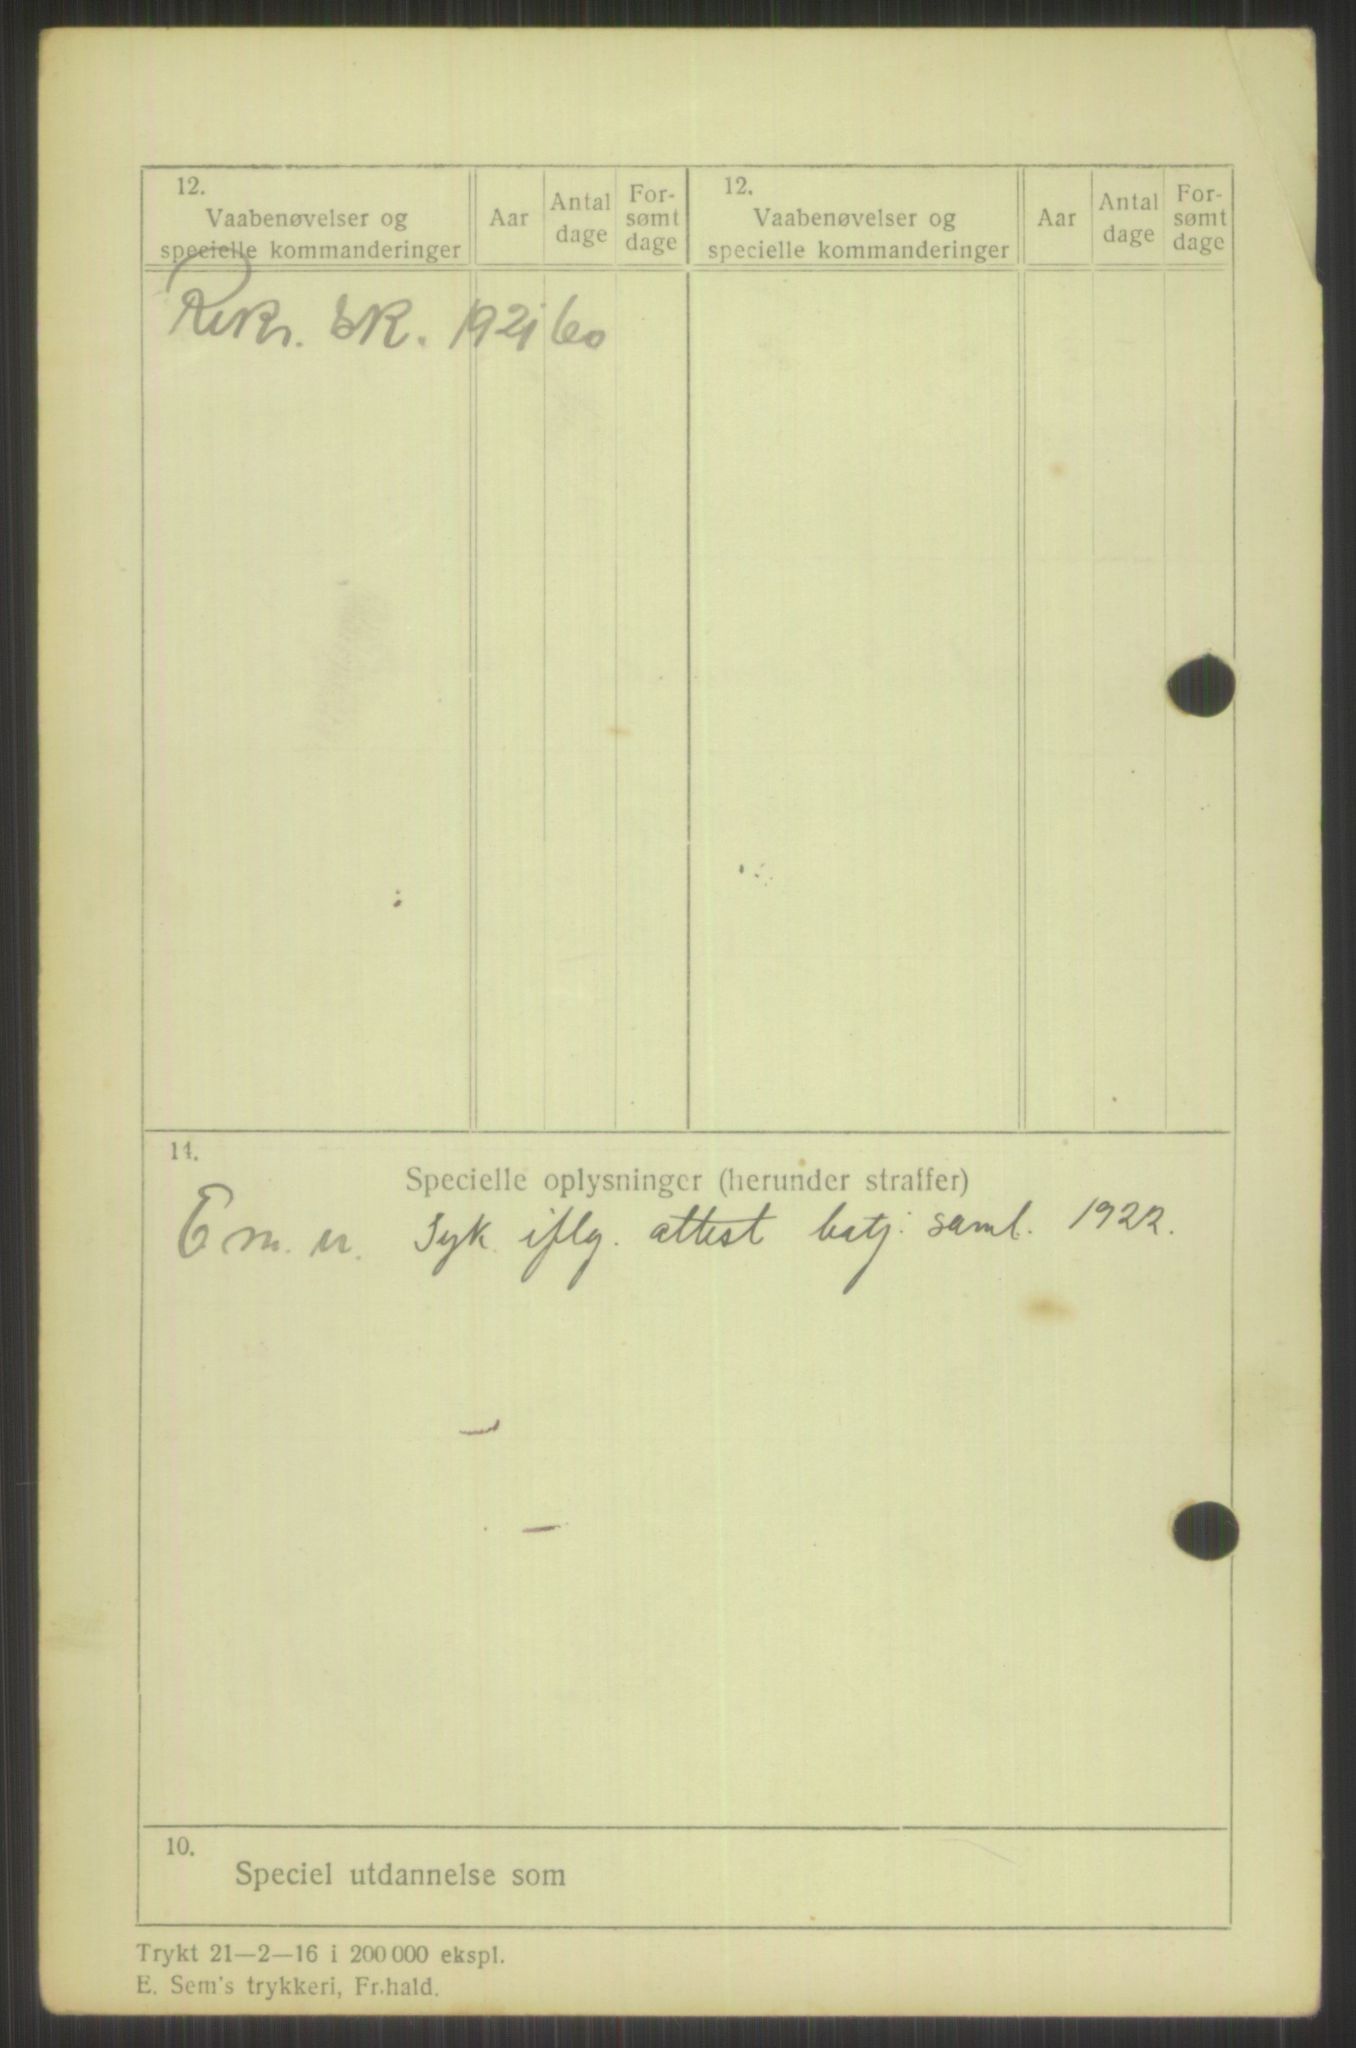 12.
Vaabenøvelser og
specielle kommanderinger
Aar
Antal
dage
For-
sømt
dage
12.
Vaabenøvelser og
specielle kommanderinger
Aar
Antal
dage
For-
sømt
dage
Rekr. sk. 1921 60
14.
Specielle oplysninger (herunder straffer)
E m. u. Syk iflg. attest batj. saml. 1922.
10.
Speciel utdannelse som
Trykt 21—2—16 i 200 000 ekspl.
E. Sem's trykkeri, Fr.hald.